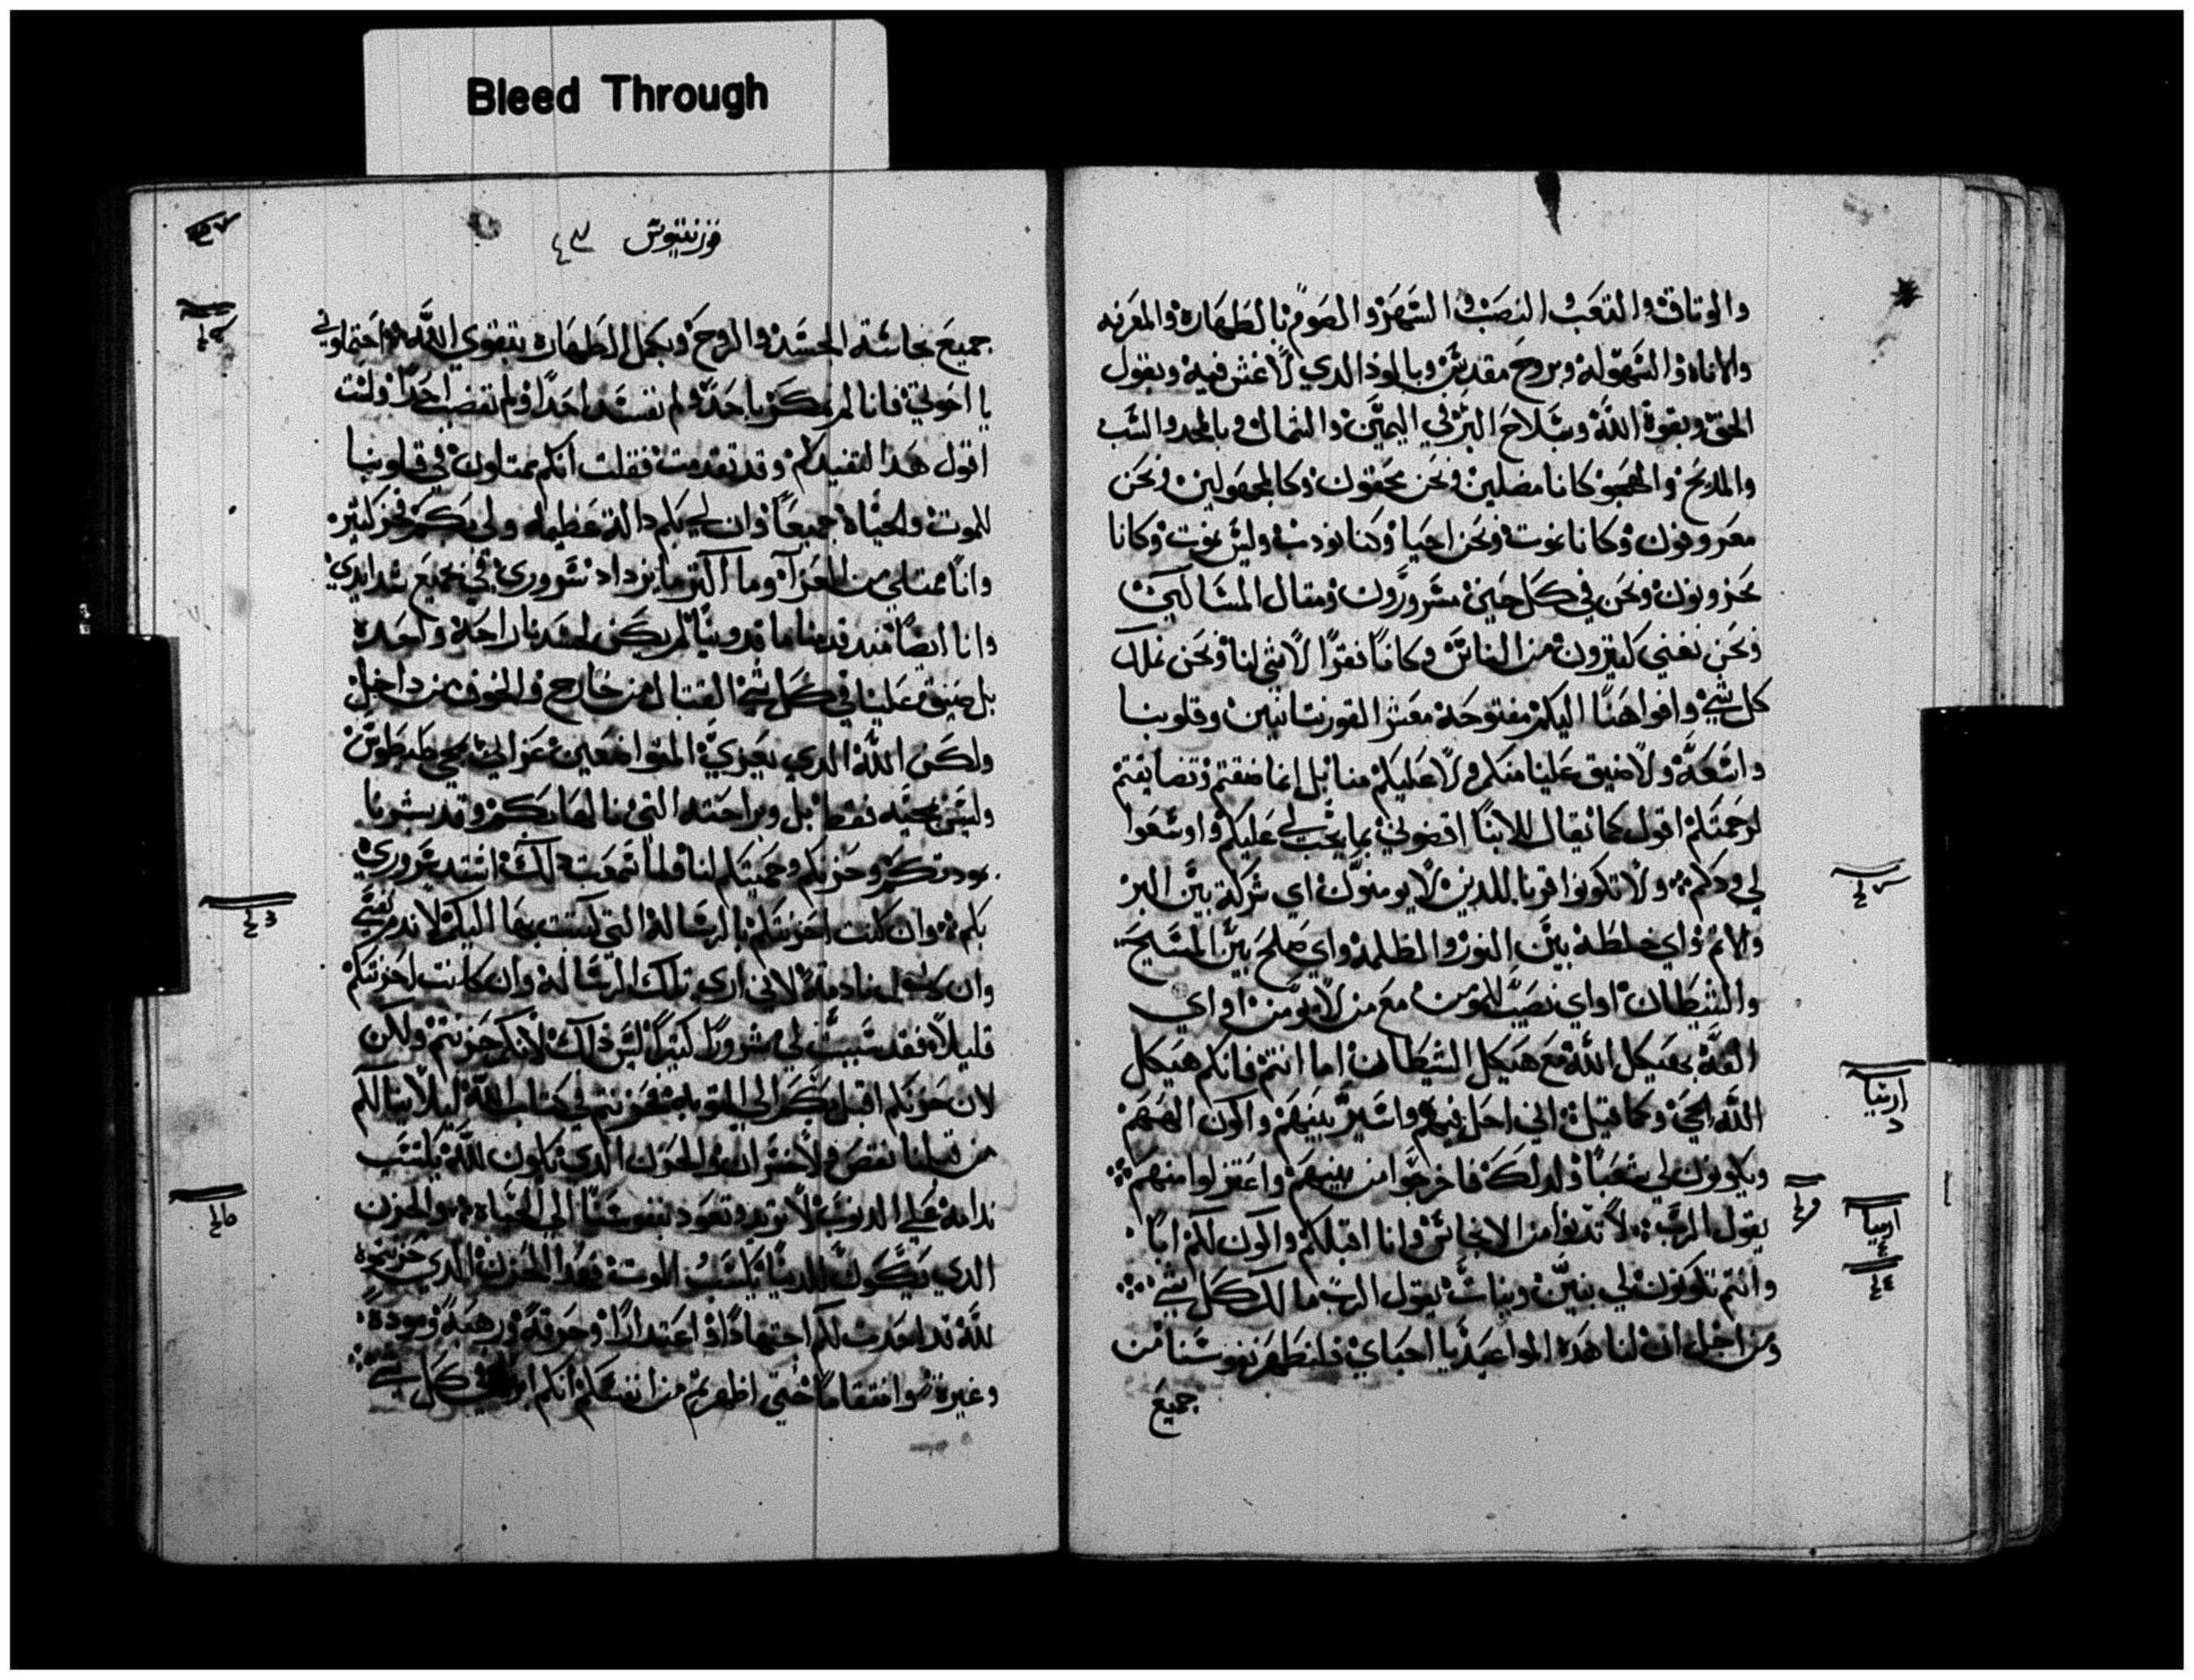 Bleed Through
والوثاق والتعب والنصب والسهر والصوم بالطهارة والمعرفه
والاناة والسهوله وبروح مقدس وبالود الدي لا غش فيه وبقول
الحق وبقوة الله وسلاح البر في اليمين والشمال وبالمجد والسب
والمديح والهجو كانا مضلين ونحن محقون وكالمجهولين ونحن
معروفون وكانا نموت ونحن احيا وكنا نودب وليس نموت وكانا
محزونون ونحن في كل حين مسرورون ومثال المساكين
ونحن نغني كثيرون من الناس وكانا فقرا لا شي لنا ونحن نملك
كل شي وافواهنا اليكم مفتوحة معشر القورنتانيين وقلوبنا
واسعة ولا ضيق علينا منكم ولا عليكم منا بل انما ضقتم وتضايقتم
لرحمتكم اقول كما يقال للابنا اقضوني بما يجب لي عليكم واوسعوا
لي ودكم ولا تكونوا قرنا للدين لا يومنون اي شركة بين البر
والاثم واي خلطة بين النور والظلمة واي صلح بين المسيح
والشيطان او اي نصيب للمومن مع من لا يومن او اي
الفة بهيكل الله مع هيكل الشيطان اما انتم فانكم هيكل
الله الحي وكما قيل اني احل فيهم واسير بينهم واكون الههم
ويكونون لي شعبا ولدلك فاخرجوا من بينهم واعتزلوا منهم
يقول الرب لا تدنوا من الانجاس وانا اقبلكم واكون لكم ابا
وانتم تكونون لي بنين وبنات يقول الرب مالك كل شي
ومن اجل ان لنا هده المواعيد يا احباي فلنطهر نفوسنا من
جميع
ارميا
ارميا
قورنتيوس
جميع نجاسة الجسد والروح ونكمل الطهارة بتقوي الله احتملوني
يا اخوتي فانا لم نمكر باحد ولم نفسد احدا ولم نغصب احدا ولست
اقول هدا لنقيدكم وقد تقدمت فقلت انكم ممتلون في قلوبنا
للموت والحياة جميعا وان لي بكم دالة عظيمه ولي بكم فخر كثير
وانا ممتلي من العزآ وما اكثر ما يزداد سروري في جميع شدايدي
وانا ايضا مند قدمنا ماقدونيا لم يكن لجسدنا راحة واحدة
بل ضيق علينا في كل شي القتال من خارج والخوف من داخل
ولكن الله الدي يعزي المتواضعين عزاني بمجي طيطوس
وليس بمجيه فقط بل وبراحته التي نالها بكم وقد بشرنا
بمودتكم وحزنكم وحميتكم لنا فلما سمعت دلك اشتد سروري
بكم وان كنت احزنتكم بالرسالة التي كتبت بها اليكم لا ندم نفسي
وان كانت نادمة لاني اري تلك الرسالة وان كانت احزنتكم
قليلا فقد سببت لي سرورا كثيرا ليس دلك لانكم حزنتم ولكن
لان حزنكم اقبل بكم الي التوبة فحزنتم في كتاب الله ليلا ينالكم
من قبلنا نقص ولا خسران والحزن الدي يكون لله يكسب
ندامة علي الدنوب لا تزيد وتعود بنفوسنا الي الحياة والحزن
الدي يكون للدنيا يكسب الموت فهدا الحزن الدي حزنتموه
لله قد احدث لكم اجتهادا واعتدارا وحرقة ورهبة ومودة
وغيرة وانتقاما حتي اظهرتم من انفسكم انكم في كل شي